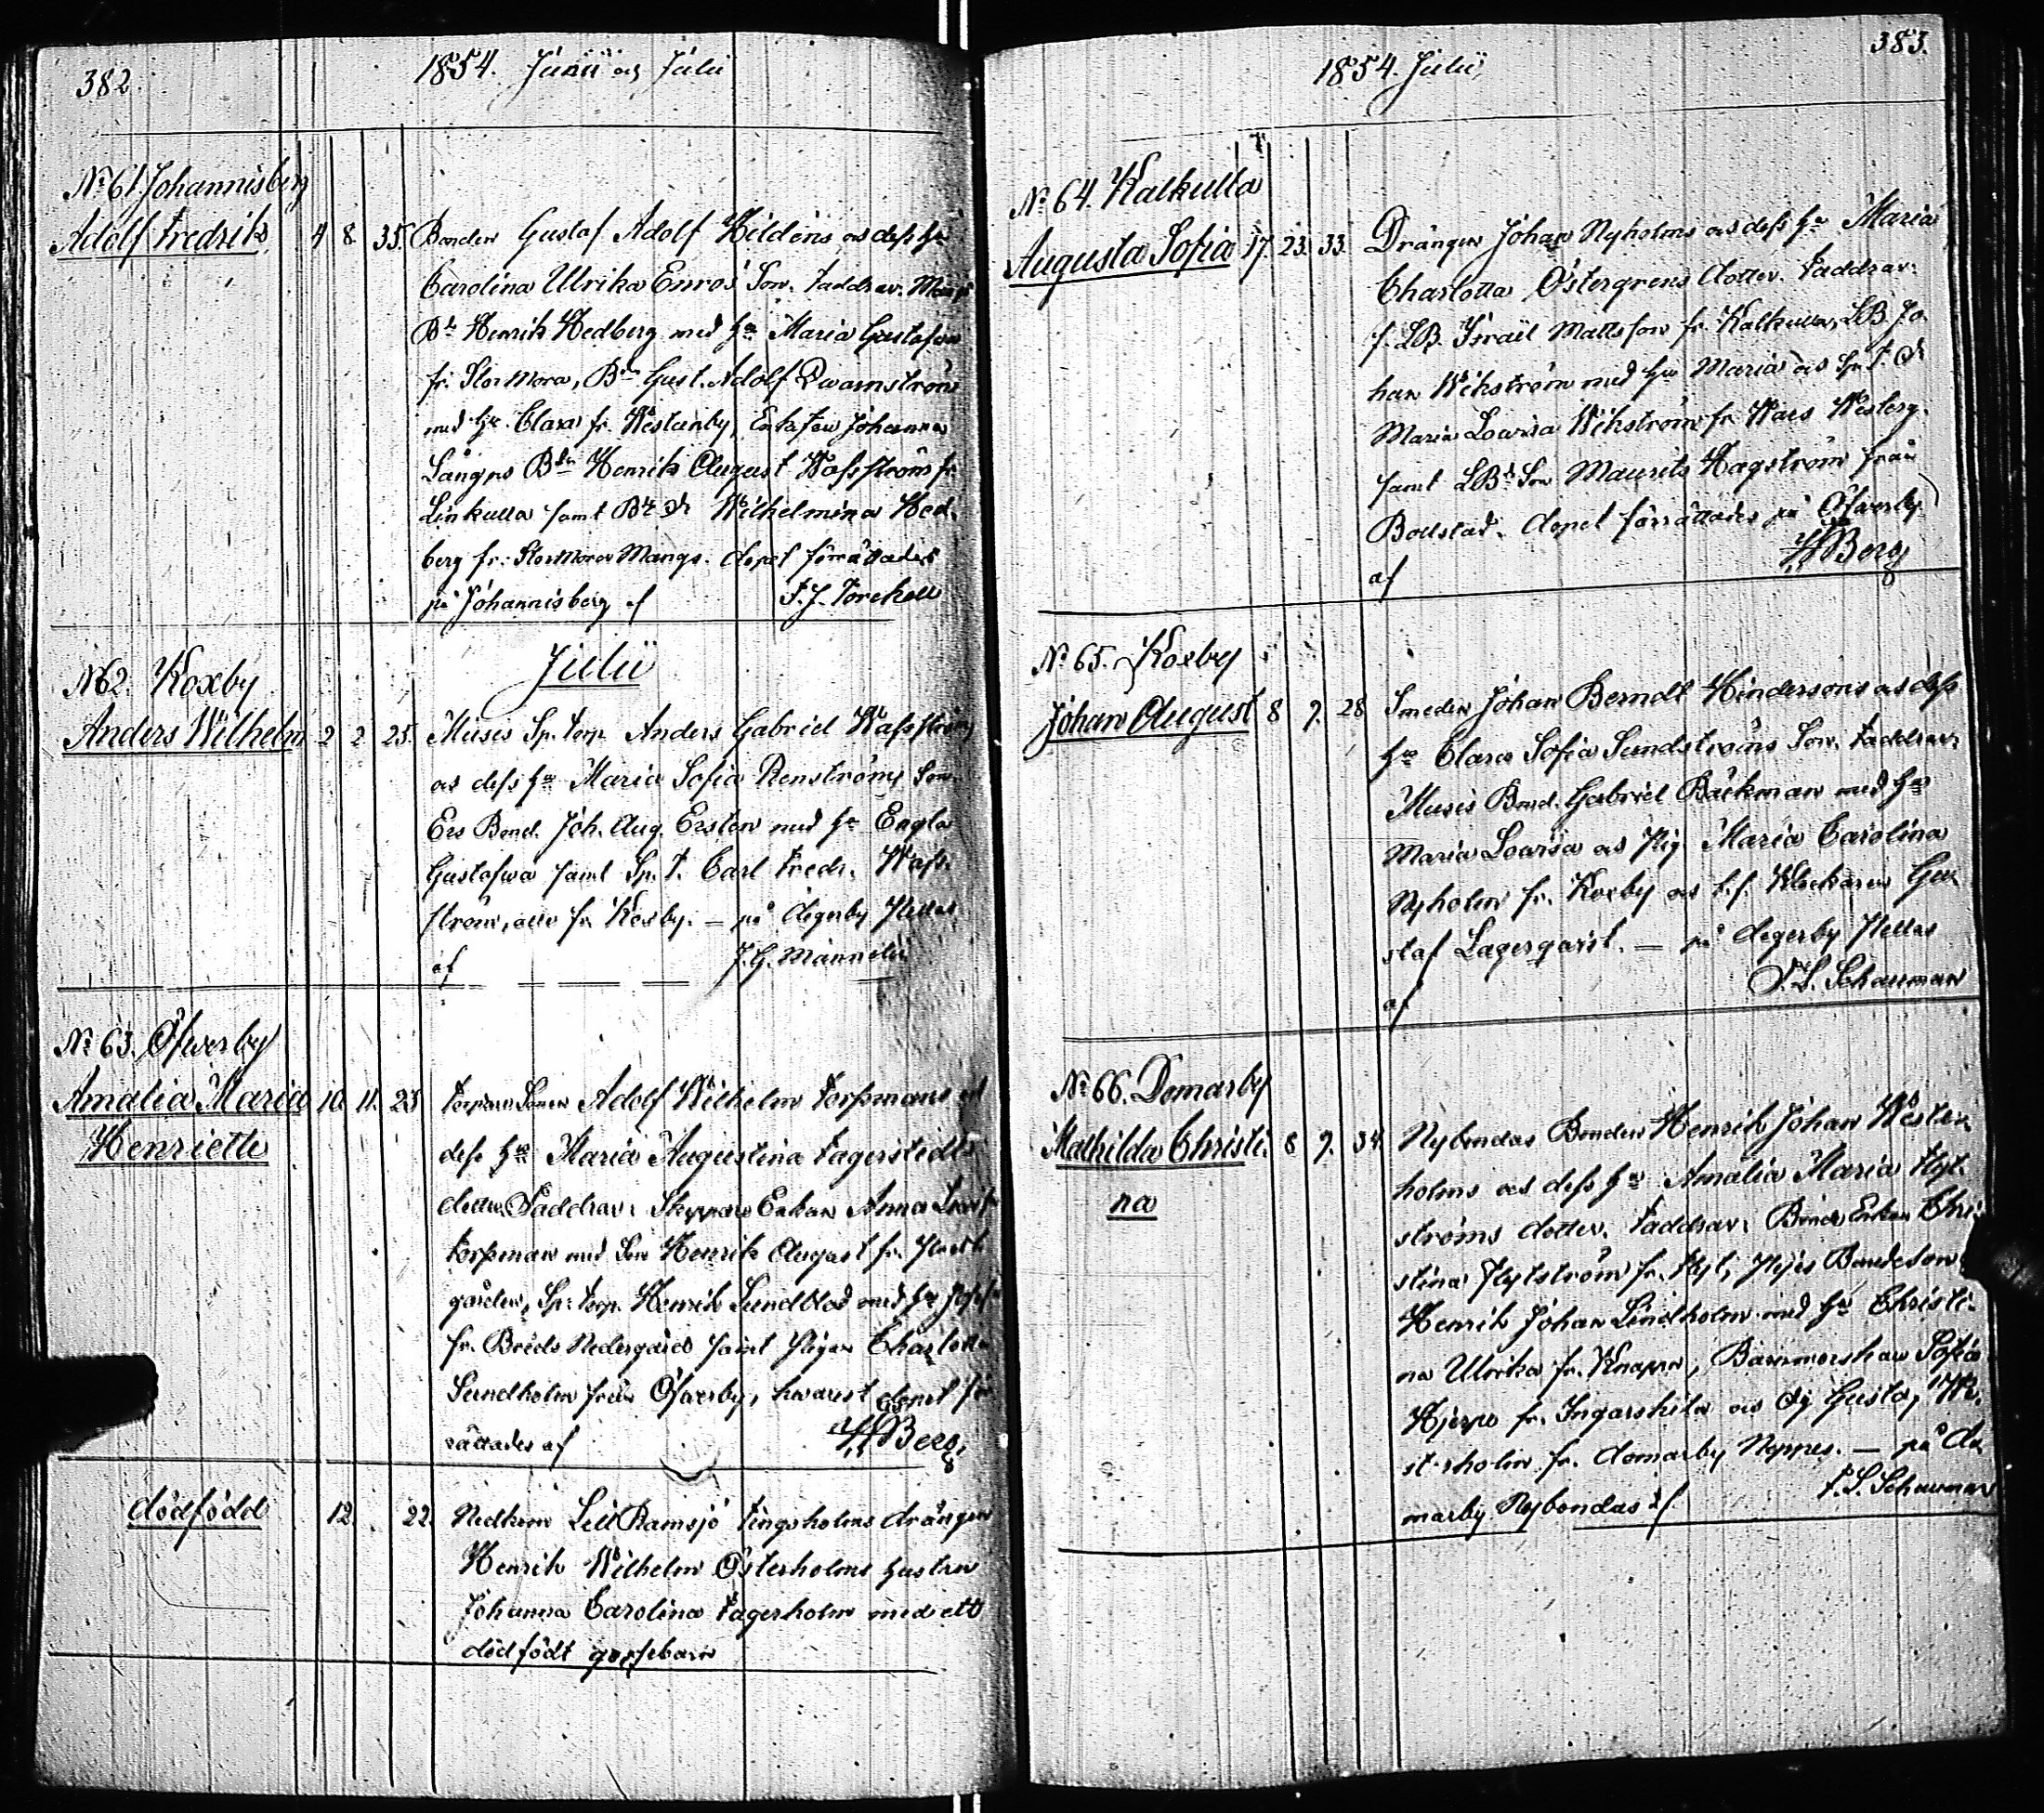 382.
1854. Junii och Julii
No 61. Johannisberg
Adolf Fredrik 4 8. 35. Bonden Gustaf Adolf Hildéns och dess Hu
Carolina Ulrika Enros Son. Faddrar:
Bde Henrik Hedberg med Hu Maria Gustafva
fr. StorMora, Bdn Gust. Adolf Qwarnström
med Hu Clara fr. Westanby, Enkefru Johanna
Bdn Henrik August Wafsström fr.
Linkulla samt Wilhelmina Hed-
berg fr: StorMora Mangs. dopet förrättades
på Johannisberg af
Julii
No 62. Koxby
Anders Wilhelm 2 2. 25. Musis Sp. Torp. Anders Gabriel Wafsström
och dess Hu Maria Sofia Renströms Son.
Ers Bond. Joh. Aug. Ersten med Hu Engla
Gustafva samt Sp. T. Carl Fredr. Wafs-
ström, alla fr. Koxby. — på degerby
af
No 63. Öfverby
Amalia Maria 10. 11. 25 Adolf Wilhelm Forssmans och
Henriette
dess Hu Maria Augustina Fagerstedts
dotter. Faddrar: Skeppare Enkan Anna
Forssman med Son Henrik August fr.
gården, Sp: Torp. Henrik Sundblad med Hu
fr. Breds Nedergård samt Pigan Charlotta
Sundholm från Öfverby, hwarest dopet för-
rättades af Berg.
dödfödd 12. 22. Nedkom Lill Ramsjö Tingsholms drängen
Henrik Wilhelm Österholms hustru
Johanna Carolina Fagerholm med ett
dödfödt gossebarn
383.
1854. Julii,
No 64. Kalkulla
Augusta Sofia 17. 23. 33. Drängen Johan Nyholms och dess Hu Maria
Charlotta Östergrens dotter. Faddrar:
f. LB. Israil Mattsson fr. Kalkulla, LB. Jo-
han Wikström med Hu Maria och
Maria Lovisa Wikström fr. Wars Wesberg.
samt LBd Son Maurits Hagström från
Bollstad. dopet förrättades på Öfverby
af Berg
No 65. Koxby
Johan August 8 9. 28 Smeden Johan Berndt Hindersons och dess
Hu Clara Sofia Sundströms Son. Faddrar:
Musis Bond. Gabriel Bäckman med Hu
Maria Lovisa och Pig. Maria Carolina
Nyholm fr. Koxby och t.f. Klockaren Gu-
staf Lagerqvist. — på degerby
af F. L. Schauman
No 66. Domarby
Mathilda Christi- 8 9. 34. Nybondas Bonden Henrik Johan Wester-
na
holms och dess Hu Amalia Maria Flyt-
ströms dotter. Faddrar: Bonde Enkan Chri-
stina Flytström fr. Bondeson
Henrik Johan Lindholm med Hu Christi-
na Ulrika fr. Knapas, Barnmorskan Sofia
Hjerpe fr. Ingarskila och Gusta, We-
sterholm fr. domarby Noppes. — på do-
marby Nybondas af F. L. Schauman